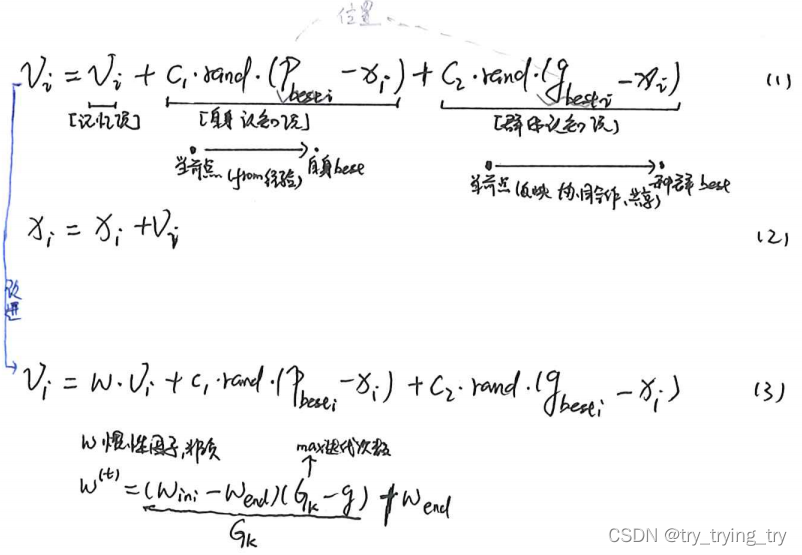 位置
V_i = V_i + C_1·rand·(P_{best i} - x_i) + C_2·rand·(g_{best i} - x_i) (1)
[记忆项] [自身认知项] [群体认知项]
当前点 (from经验) 自身best 当前点 (反映协同合作、共享) 种群best
x_i = x_i + V_i (2)
改进
V_i = w·V_i + C_1·rand·(P_{best i} - x_i) + C_2·rand·(g_{best i} - x_i) (3)
w 惯性因子,非负 max迭代次数
w^{(t)} = (w_{ini} - w_{end})(G_k - g) / G_k + w_{end}
CSDN @try_trying_try